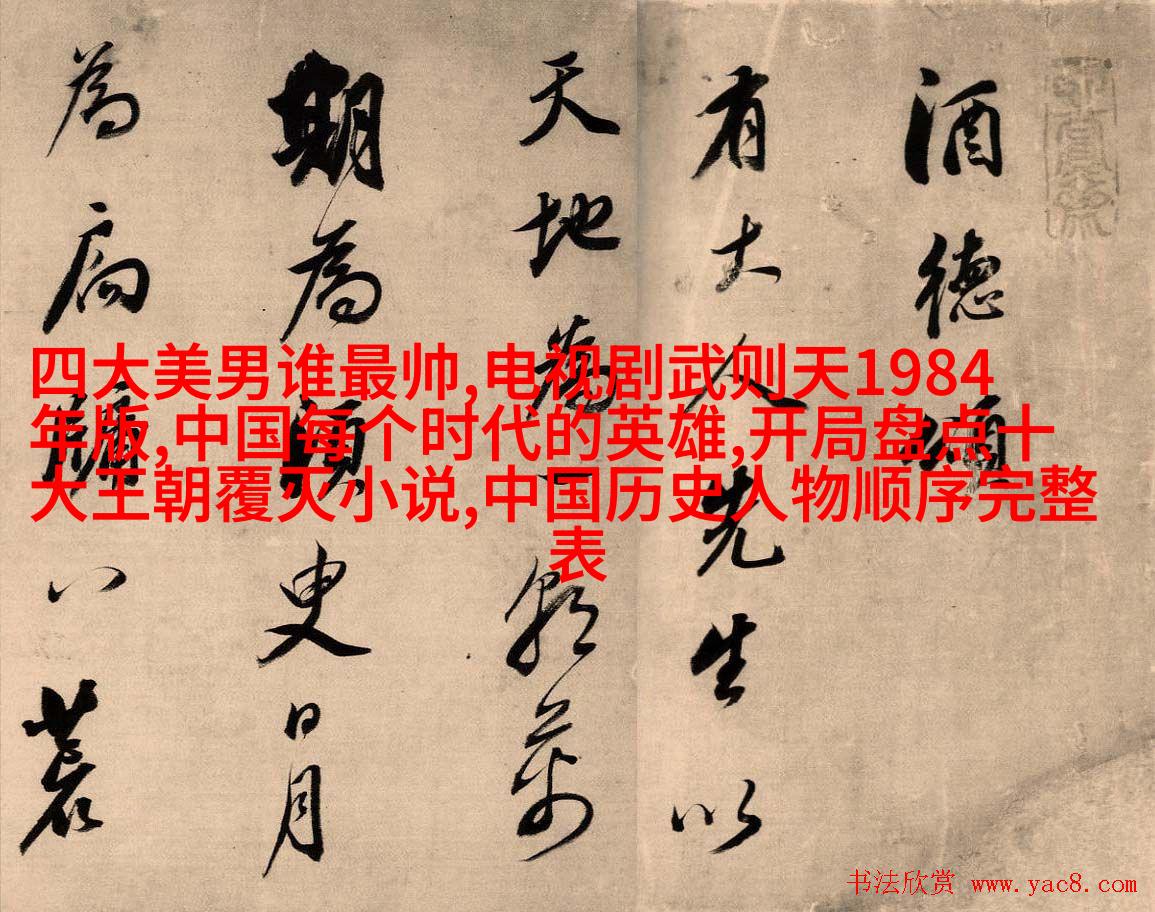 酒德頌
有大人先生以
天地為一朝萬
期為須臾日月
為扃牖八荒
四大美男谁最帅,电视剧武则天1984
年版,中国每个时代的英雄,开局盘点十
大王朝覆灭小说,中国历史人物顺序完整
表
书法欣赏 www.yac8.com